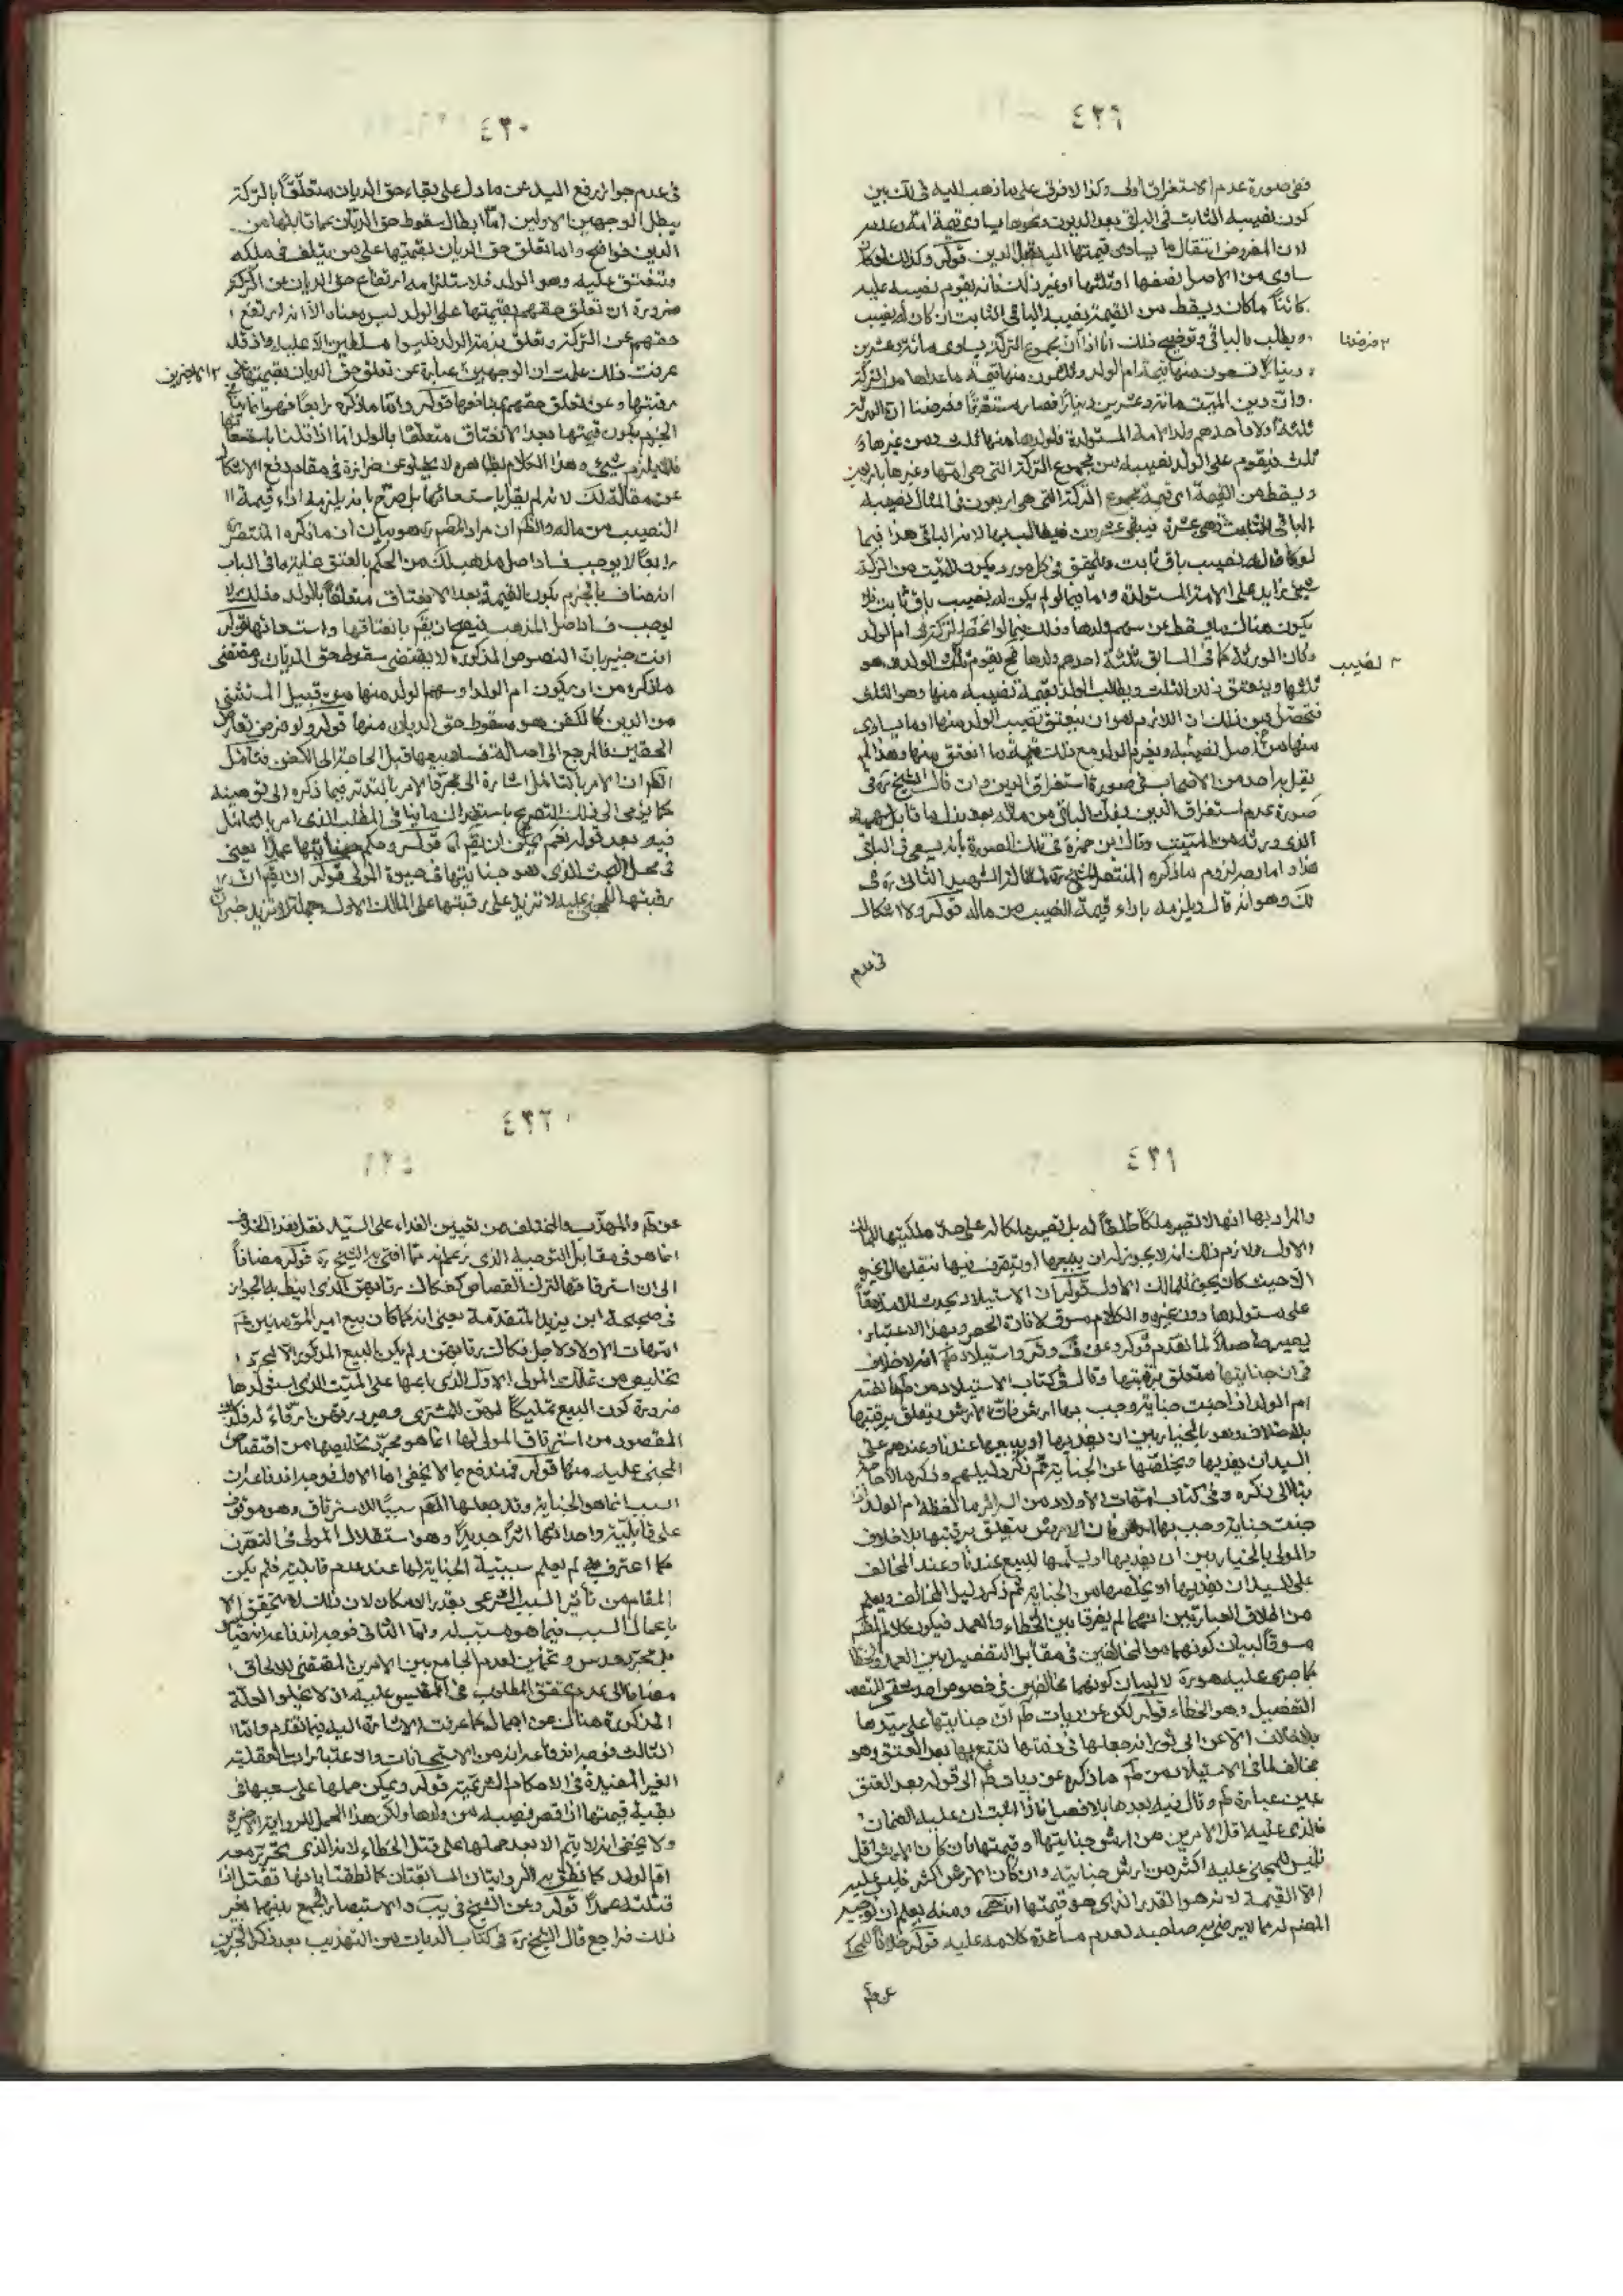 ٤٢٩
ففى صورة عدم الاستغراق اولى وكذا لا فرق على ما ذهب اليه فى لك بين
كون نصيبه الثابت فى الباقى بعد الديون ونحوها يساوى قيمة امه وعدمه
لان المفروض انتقال ما يساوى قيمتها اليه قبل الدين قوله وكذلك لو كان
ساوى من الاصل نصفها او ثلثها او غير ذلك فانه يقوم نصيبه عليه
كائناً ما كان ويسقط من القيمة نصيبه الباقى الثابت ان كان له نصيب
ويطلب بالباقى وتوضيح ذلك انا اذا ان مجموع التركة يساوى مائة وعشرين
٢ فرضنا
ديناراً تسعون منها قيمة ام الولد وثلثون منها قيمة ما عداها من التركة
وان دين الميت مائة وعشرين ديناراً فصار مستغرقاً وفرضنا ان الورثة
ثلثة اولاد احدهم ولد الامة المستولدة فلولدها منها ثلث ومن غيرها
ثلث فيقوم على الولد نصيبه من مجموع التركة التى هى امها وغيرها باربعين
ويسقط من القيمة اى قيمة مجموع التركة التى هى اربعون فى المثال نصيبه
الباقى الثابت وهى عشرة فيبقى
لو كان له نصيب باق ثابت ويتحقق فى كل مورد يكون للميت من التركة
شىء زايد على الامة المستولدة واما فيما لو لم يكن له نصيب باق ثابت فلا
يكون هناك ما يسقط عن سهم ولدها وذلك فيما لو انحصر التركة فى ام الولد
وكان الورثة كما فى السابق ثلثة احدهم ولدها فح يقوم ذلك الولد هو
٣ نصيب
ثلثها وينعتق ذلك الثلث ويطالب الولد بقيمة نصيبه منها وهو الثلث
فتحصل من ذلك ان اللازم هو ان ينعتق نصيب الولد منها او ما يساوى
منها من اصل نصيبه ويغرم الولد مع ذلك قيمة ما انعتق منها وهذا لم
يقل به احد من الاصحاب فى صورة استغراق الدين وان قال الشيخ ره فى
صورة عدم استغراق الدين يفك الباقى من ماله بعد بذل ما قابل سهمه
الذى ورثه من الميت وقال ابن حمزة فى تلك الصورة بأنه يسعى فى الباقى
هذا واما وجه لزوم ما ذكره المنتصر للشيخ ره لمقالة الشهيد الثانى ره فى
لك وهو انه قال ويلزمه باداء قيمة النصيب من ماله قوله ولا اشكال
فى عدم
٤٣٠
فى عدم جواز رفع اليد عن ما دل على بقاء حق الديان متعلقاً بالتركة
يبطل الوجهين الاولين امّا ابطال سقوط حق الديان عما قابلها من
الدين فواضح واما تعلق حق الديان بقيمتها على من يتلف فى ملكه
وتنعتق عليه وهو الولد فلاستلزامه ارتفاع حق الديان عن التركة
ضرورة ان تعلق حقهم بقيمتها على الولد ليس معناه الا انه ارتفع
حقهم عن التركة وتعلق بذمة الولد فليسوا مسلطين الا عليه واذ قد
عرفت ذلك علمت ان الوجهين عبارة عن تعلق حق الديان بقيمتها على
٢ الاخيرين
رقبتها وعن تعلق حقهم بمنافعها قوله وامّا ما ذكره رابعاً فهو انما ينافى
الجزم بكون قيمتها بعد الانعتاق متعلقا بالولد امّا اذا قلنا باستسعائها
فلا يلزم شىء وهذا الكلام بظاهره لا يخلو عن حزازة فى مقام دفع الاشكال
عن مقالة لك لانه لم يقل باستسعائها بل صرّح بانه يلزمه اداء قيمة
النصيب من ماله والظ ان مراد المصم ره هو بيان ان ما ذكره المنتصر
رابعاً لا يوجب فساد اصل مذهب لك من الحكم بالعتق غاية ما فى الباب
انه ضاف بالجزم بكون القيمة بعد الانعتاق متعلقاً بالولد
لوجب فساد اصل المذهب فيصح ان يقم بانعتاقها واستسعائها قوله
انت خبير بان النصوص المذكورة لا يقتضى سقوط حق الديان ومقتضى
ما ذكره من ان يكون ام الولد او سهم الولد منها من قبيل المستثنى
من الدين كالكفن هو سقوط حق الديان منها قوله ولو فرض تعارض
الحقين فالمرجع الى اصالة فساد بيعها قبل الحاجة الى الكفن فتأمل
الظ ان الامر بالتأمل اشارة الى مجرّد الامر بالتدبّر فيما ذكره
كما يومى الى ذلك التصريح باستقرار
فيه بعد قوله نعم يمكن ان يقم قوله وحكم جنايتها عمداً يعنى
فى محل البحث الذى هو جنايتها فى حيوة المولى قوله ان يقم ان
رقبتها للمجنى عليه لا تزيد على رقبتها على المالك الاول
٤٣١
والمراد بها انها لا تصير ملكاً طلقاً له بل تصير ملكا له على حد ملكيتها للمالك
الاول ولازم ذلك انه لا يجوز له ان يبيعها او يتصرف فيها بنقلها الى غيره
الا حيث كان يجوز للمالك الاول قوله ان الاستيلاد يحدث
على مستولدها دون غيره والكلام مسوق لافادة الحصر وبهذا الاعتبار
يصير حاصلاً لما تقدم قوله وعن ف وئر واستيلاد ط انه لا خلاف
فى ان جنايتها متعلق برقبتها وقال فى كتاب الاستيلاد من ط ما لفظه
ام الولد اذا جنت جناية وجب بها ارش فان الارش يتعلق برقبتها
بلا خلاف وهو بالخيار بين ان يفديها او يبيعها عندنا وعندهم على
السيد ان يفديها ويخلّصها عن الجناية ثم ذكر دليلهم
بنا الى ذكره وفى كتاب امهات الاولاد من السرائر ما لفظه ام الولد
جنت جناية وجب بها ارش فان الارش يتعلق برقبتها بلا خلاف
والمولى بالخيار بين ان يفديها او يسلمها للبيع عندنا وعند المخالف
على السيد ان يفديها او يخلصها من الجناية ثم ذكر دليل المخالف ويعلم
من اطلاق العبارتين انهما لم يفرقا بين الخطاء والعمد فيكون كلام
مسوقاً لبيان كونهما
ما جرى عليه هو ره لا لبيان كونهما مخالفين فى خصوص احد شقى
التفصيل وهو الخطاء قوله لكن عن ديات ط ان جنايتها على سيدها
بلا خلاف الا عن ابى ثور انه جعلها فى ذمتها تتبع بها بعد العتق وهو
مخالف لما فى الاستيلاد من ط ما ذكره عن ديات ط الى قوله بعد العتق
عين عبارة ط وقال فيه بعدها بلا فصل فاذا ثبت ان عليه الضمان
فالذى عليه اقل الامرين من ارش جنايتها او قيمتها فان كان الارش اقل
فليس للمجنى عليه اكثر من ارش جنايته وان كان الارش اكثر فليس عليه
الّا القيمة لانه هو القدر الذى هو قيمتها انتهى ومنه يعلم ان توجيه
المصنم له مما لا يرضى به صاحبه لعدم مساعدة كلامه عليه قوله خلافاً للمحكى
عن ط
٤٣٢
عن ط والمهذّب والمختلف من تعيين الفداء على السيّد نقل هذا الخلاف
انما هو فى مقابل التوجيه الذى زعم انه مما افتى به الشيخ ره قوله مضافاً
الى ان استرقاقها لترك القصاص كفكاك رقابهن الذى انيط به الجواز
فى صحيحة ابن يزيد المتقدمة يعنى انه كما كان بيع امير المؤمنين ع
امهات الاولاد لاجل فكاك رقابهن ولم يكن بالبيع المذكور الا مجرّد
تخليص من تملك المولى الاول الذى باعها على الميت الذى استولدها
ضرورة كون البيع تمليكاً لهن للمشترى وصيرورتهن ارقّاء له فكذلك
المقصود من استرقاق المولى لها انما هو مجرّد تخليصها من اقتصاص
المجنى عليه منها قوله فمندفع بما لا يخفى اما الاول فوجه اندفاعه ان
السبب انما هو الجناية وقد جعلها المصم سبباً للاسترقاق وهو موقوف
على قابليته واحداثها اثراً جديداً وهو استقلال المولى فى التصرف
كما اعترف به لم يعلم سببية الجناية لها عند عدم قابليته فلم يكن
المقام من تأثير السبب الشرعى بقدر الامكان لان ذلك لا يتحقق الا
باعمال السبب فيما هو سبب له وامّا الثانى فوجه اندفاعه انه قياس
بل مجرّد حدس وتخمين لعدم الجامع بين الامرين المقتضى للالحاق
مضافا الى عدم تحقق المطلوب فى المقيس عليه اذ لا تخلو العلة
المذكورة هناك عن اجمال كما عرفت الاشارة اليه فيما تقدم وامّا
الثالث فوجه اندفاعه انه من الاستحسانات والاعتبارات العقلية
الغير المفيدة فى الاحكام الشرعية قوله ويمكن حملها على سعيها فى
بقية قيمتها اذا قصر نصيبه من ولدها ولكن هذا الحمل
ولا يخفى انه لا يتم الا بعد حملها على قتل الخطاء لانه الذى
ام الولد كما نطق به الروايتان السابقتان كما نطقتا بانها تقتل اذا
قتلته عمداً قوله وعن الشيخ فى يب والاستبصار الجمع بينهما بغير
ذلك فراجع قال الشيخ ره فى كتاب الديات من التهذيب بعد ذكر